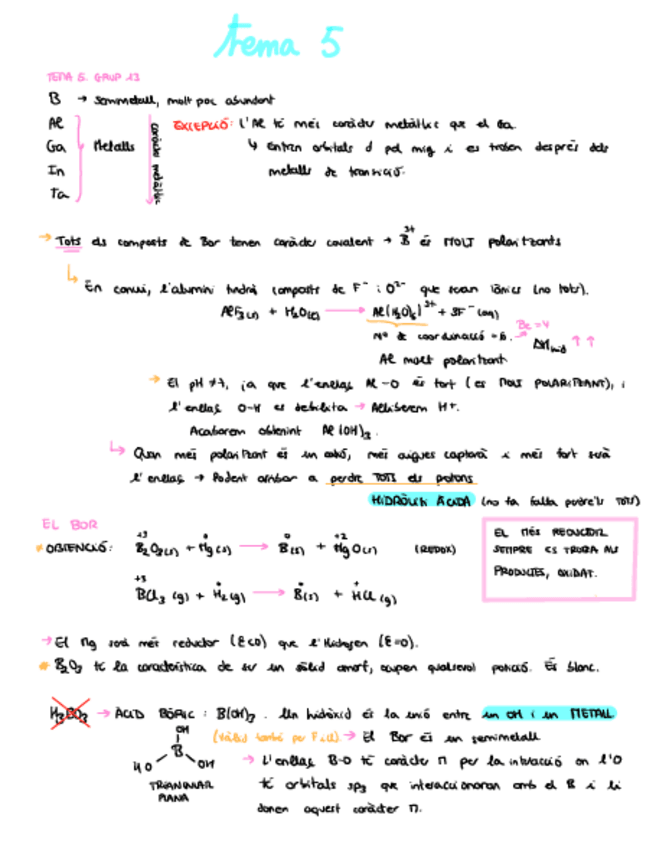 tema 5
TEMA 5. GRUP 13
B → semimetall, molt poc abundant
Al
Ga
In
Ta
Metalls
caràcter metàl·lic
EXCEPCIÓ: l'Al té més caràcter metàl·lic que el Ga.
↳ Entren orbitals d pel mig i es troben després dels
metalls de transició.
→ Tots els composts de Bor tenen caràcter covalent → B³⁺ és MOLT polaritzants
↳ En canvi, l'alumini tindrà composts de F⁻ i O²⁻ que seran iònics (no tots).
AlF₃(s) + H₂O(l) → Al(H₂O)₆)³⁺ + 3F⁻(aq)
Nº de coordinació = 6. → Be = 4
ΔH ↑↑
Al molt polaritzant
→ El pH ≠ 7, ja que l'enllaç Al-O és fort (es MOLT POLARITZANT), i
l'enllaç O-H es debilita → Alliberem H+.
Acabarem obtenint Al(OH)₃.
↳ Quan més polaritzant és un catió, més aigües captarà i més fort serà
l'enllaç → Podent arribar a perdre TOTS els protons
HIDRÒLISI ÀCIDA (no fa falta perdre'ls TOTS)
EL BOR
OBTENCIÓ: B₂O₃(s) + Mg(s) → B(s) + MgO(s) (REDOX)
+3 0 0 +2
BCl₃(g) + H₂(g) → B(s) + HCl(g)
+3
EL MÉS REDUCTOR
SEMPRE ES TROBA ALS
PRODUCTES, OXIDAT.
→ El Mg serà més reductor (E<0) que l'Hidrogen (E=0).
B₂O₃ té la característica de ser un sòlid amorf, ocupen qualsevol posició. És blanc.
H₃BO₃ → ÀCID BÒRIC: B(OH)₃. Un hidròxid és la unió entre un OH i un METALL
(Vàlid també per F i Cl) → El Bor és un semimetall
OH
B
HO OH
TRIANGULAR
PLANA
→ L'enllaç B-O té caràcter π per la interacció on l'O
té orbitals sp₃ que interaccionaran amb el B i li
donen aquest caràcter π.